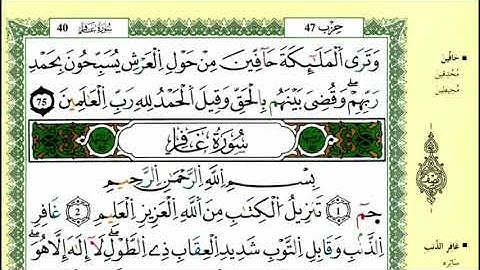 حِزْب 47
سُورَةُ غَافِر 40
وَتَرَى ٱلْمَلَٰٓئِكَةَ حَآفِّينَ مِنْ حَوْلِ ٱلْعَرْشِ يُسَبِّحُونَ بِحَمْدِ
رَبِّهِمْ ۖ وَقُضِىَ بَيْنَهُم بِٱلْحَقِّ وَقِيلَ ٱلْحَمْدُ لِلَّهِ رَبِّ ٱلْعَٰلَمِينَ 75
سُورَةُ غَافِر
بِسْمِ ٱللَّهِ ٱلرَّحْمَٰنِ ٱلرَّحِيمِ
حمٓ 1 تَنزِيلُ ٱلْكِتَٰبِ مِنَ ٱللَّهِ ٱلْعَزِيزِ ٱلْعَلِيمِ 2 غَافِرِ
ٱلذَّنۢبِ وَقَابِلِ ٱلتَّوْبِ شَدِيدِ ٱلْعِقَابِ ذِى ٱلطَّوْلِ ۖ لَآ إِلَٰهَ إِلَّا هُوَ ۖ
حَافِّينَ
مُحْدِقِينَ
مُحِيطِينَ
نصف
غَافِرِ الذَّنْبِ
سَاتِرِهِ